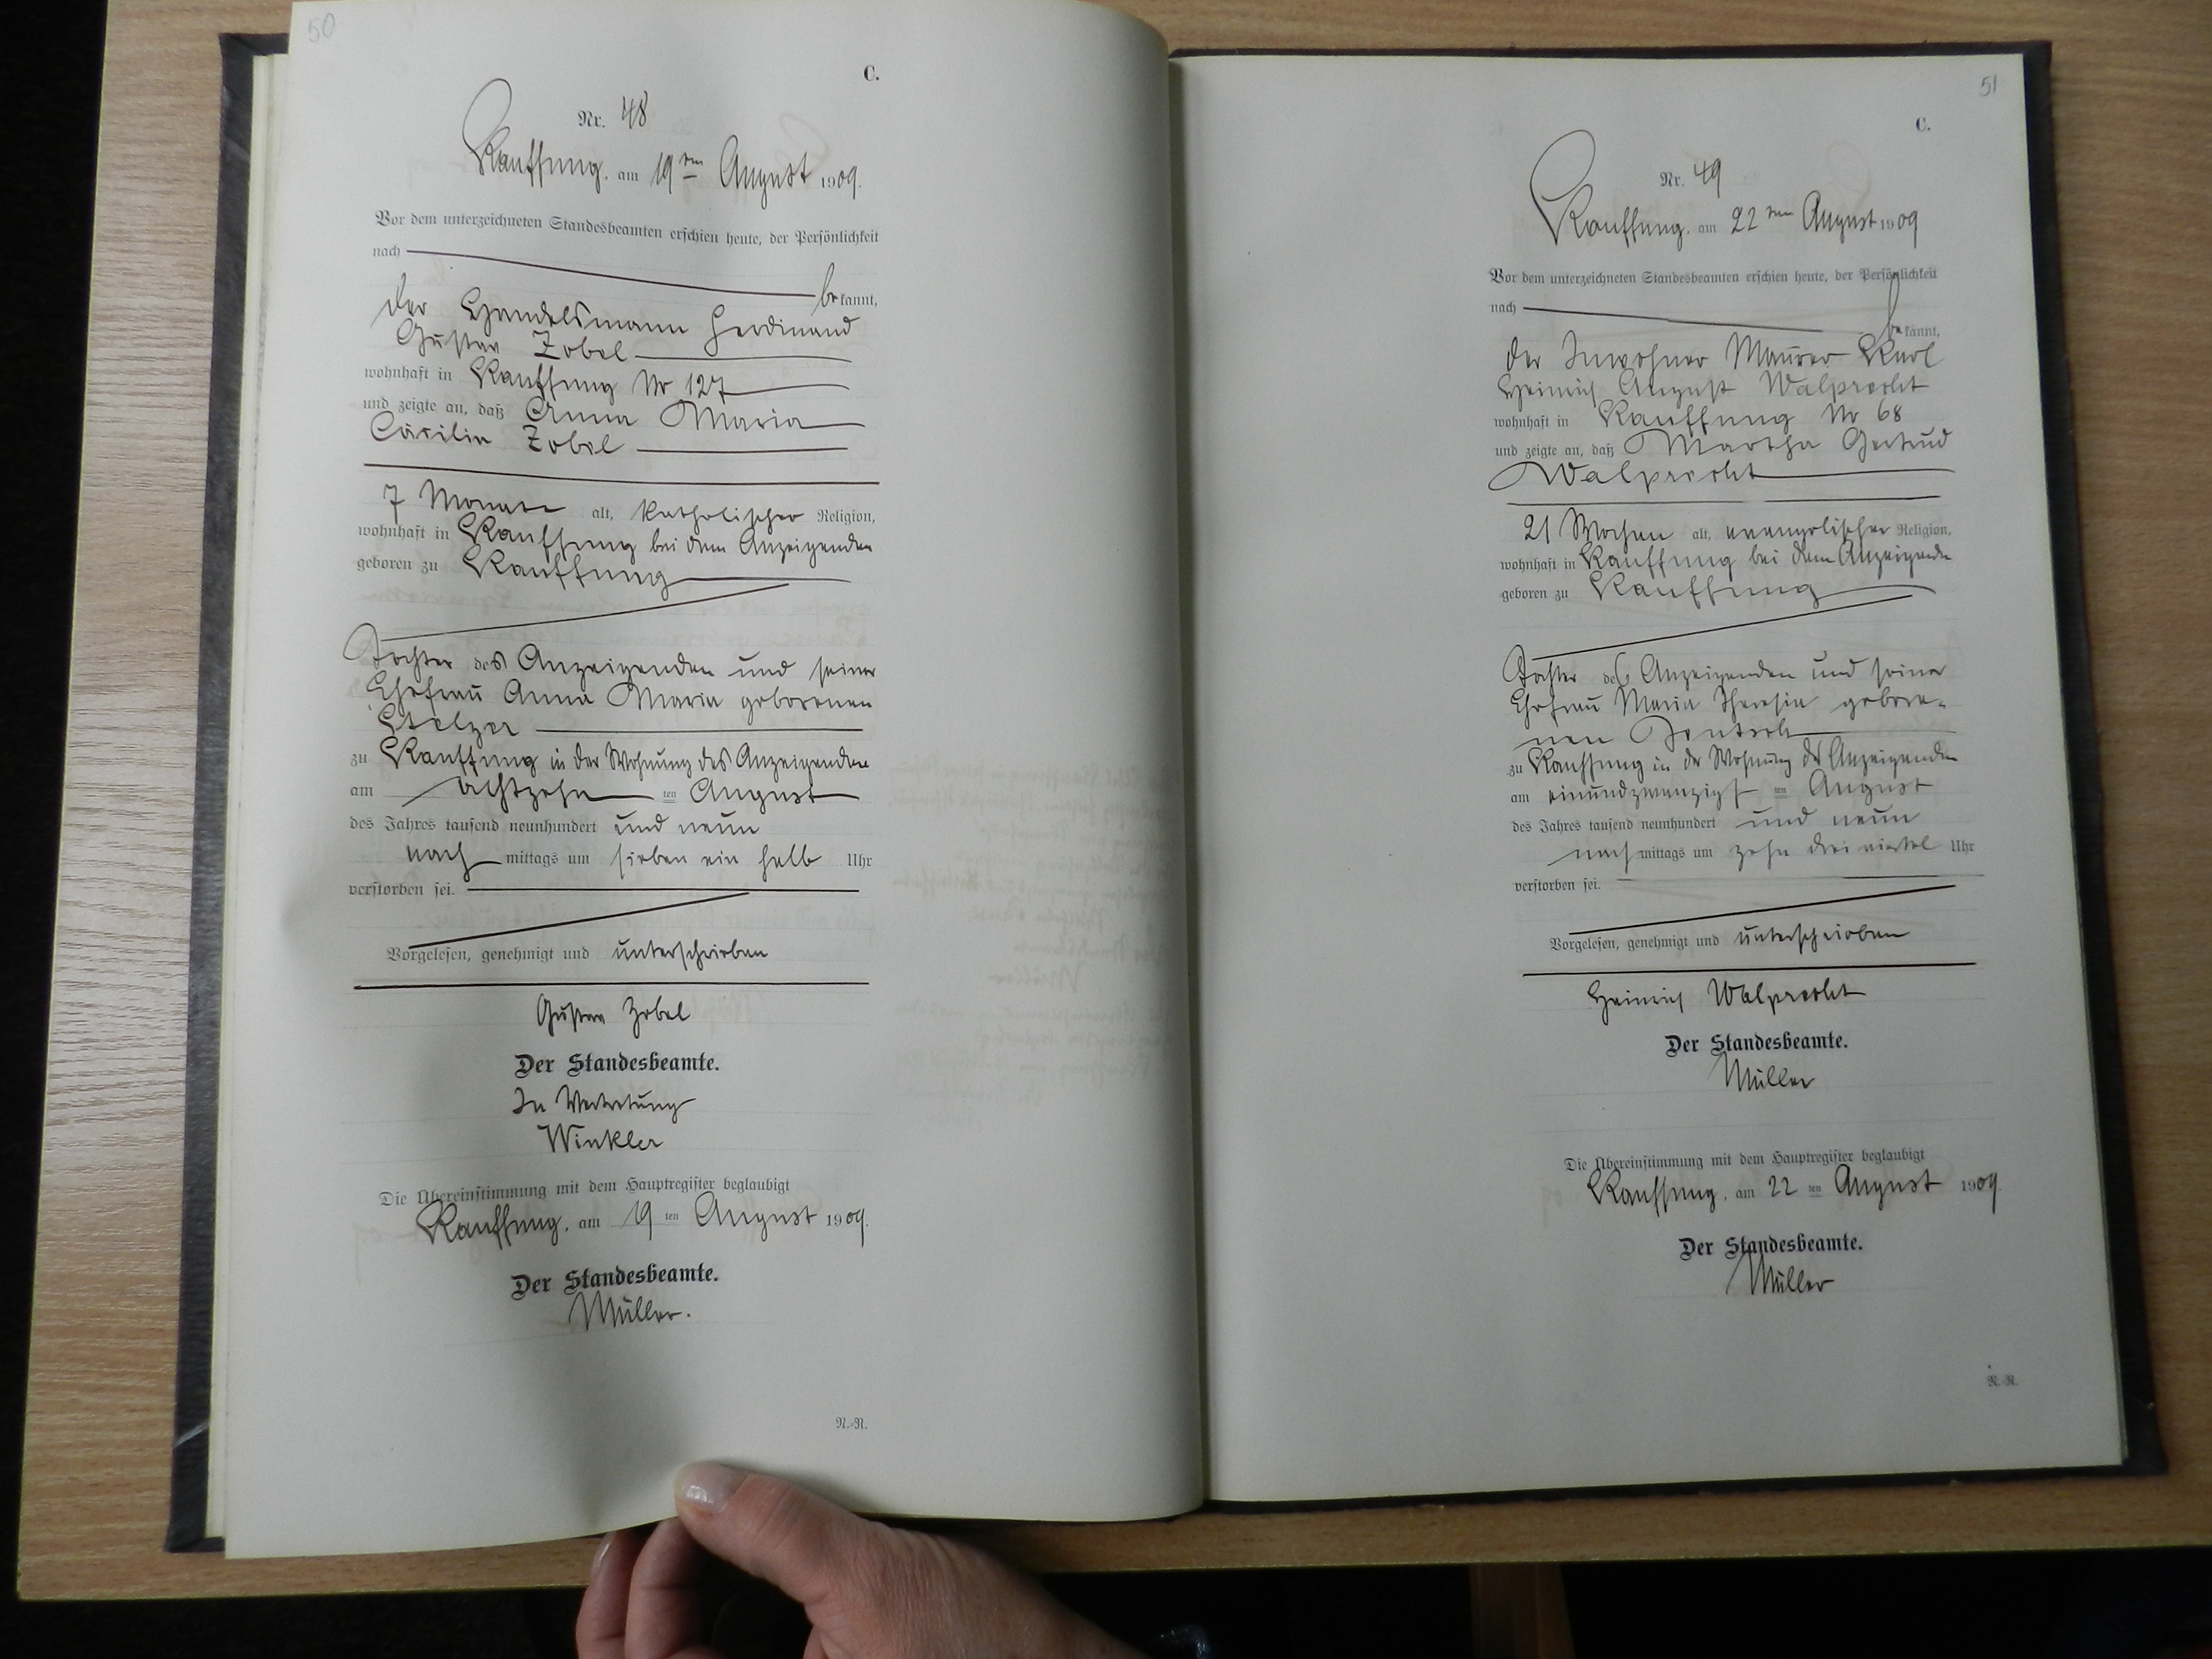 50
C.
Nr. 48
Kauffung, am 19ten August 1909.
Vor dem unterzeichneten Standesbeamten erschien heute, der Persönlichkeit
nach
bekannt,
der Handelsmann Ferdinand
Gustav Zobel
wohnhaft in Kauffung Nr 127
und zeigte an, daß Anna Maria
Cäcilia Zobel
7 Monate alt, katholischer Religion,
wohnhaft in Kauffung bei dem Anzeigenden
geboren zu Kauffung
Tochter des Anzeigenden und seiner
Ehefrau Anna Maria geborenen
Stelzer
zu Kauffung in der Wohnung des Anzeigenden
am achtzehn ten August
des Jahres tausend neunhundert und neun
nach mittags um sieben ein halb Uhr
verstorben sei.
Vorgelesen, genehmigt und unterschrieben
Gustav Zobel
Der Standesbeamte.
In Vertretung
Winkler
Die Übereinstimmung mit dem Hauptregister beglaubigt
Kauffung, am 19 ten August 1909.
Der Standesbeamte.
Müller.
N.-R.
51
C.
Nr. 49
Kauffung, am 22ten August 1909
Vor dem unterzeichneten Standesbeamten erschien heute, der Persönlichkeit
nach
bekannt,
der Inwohner Maurer Karl
Heinrich August Walprecht
wohnhaft in Kauffung Nr 68
und zeigte an, daß Martha Gertrud
Walprecht
21 Wochen alt, evangelischer Religion,
wohnhaft in Kauffung bei dem Anzeigenden
geboren zu Kauffung
Tochter des Anzeigenden und seiner
Ehefrau Maria Theresia gebore-
nen
zu Kauffung in der Wohnung des Anzeigenden
am einundzwanzigst ten August
des Jahres tausend neunhundert und neun
nach mittags um zehn drei viertel Uhr
verstorben sei.
Vorgelesen, genehmigt und unterschrieben
Heinrich Walprecht
Der Standesbeamte.
Müller
Die Übereinstimmung mit dem Hauptregister beglaubigt
Kauffung, am 22 ten August 1909.
Der Standesbeamte.
Müller
N.-R.